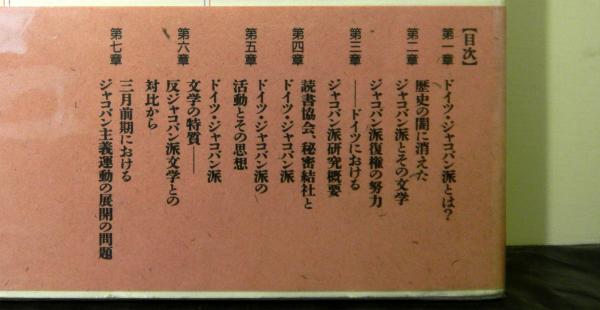 【目次】
第一章 ドイツ・ジャコバン派とは?
第二章 歴史の闇に消えた
ジャコバン派とその文学
第三章 ジャコバン派復権の努力
――ドイツにおける
ジャコバン派研究概要
第四章 読書協会、秘密結社と
ドイツ・ジャコバン派
第五章 ドイツ・ジャコバン派の
活動とその思想
第六章 ドイツ・ジャコバン派
文学の特質――
反ジャコバン派文学との
対比から
第七章 三月前期における
ジャコバン主義運動の展開の問題